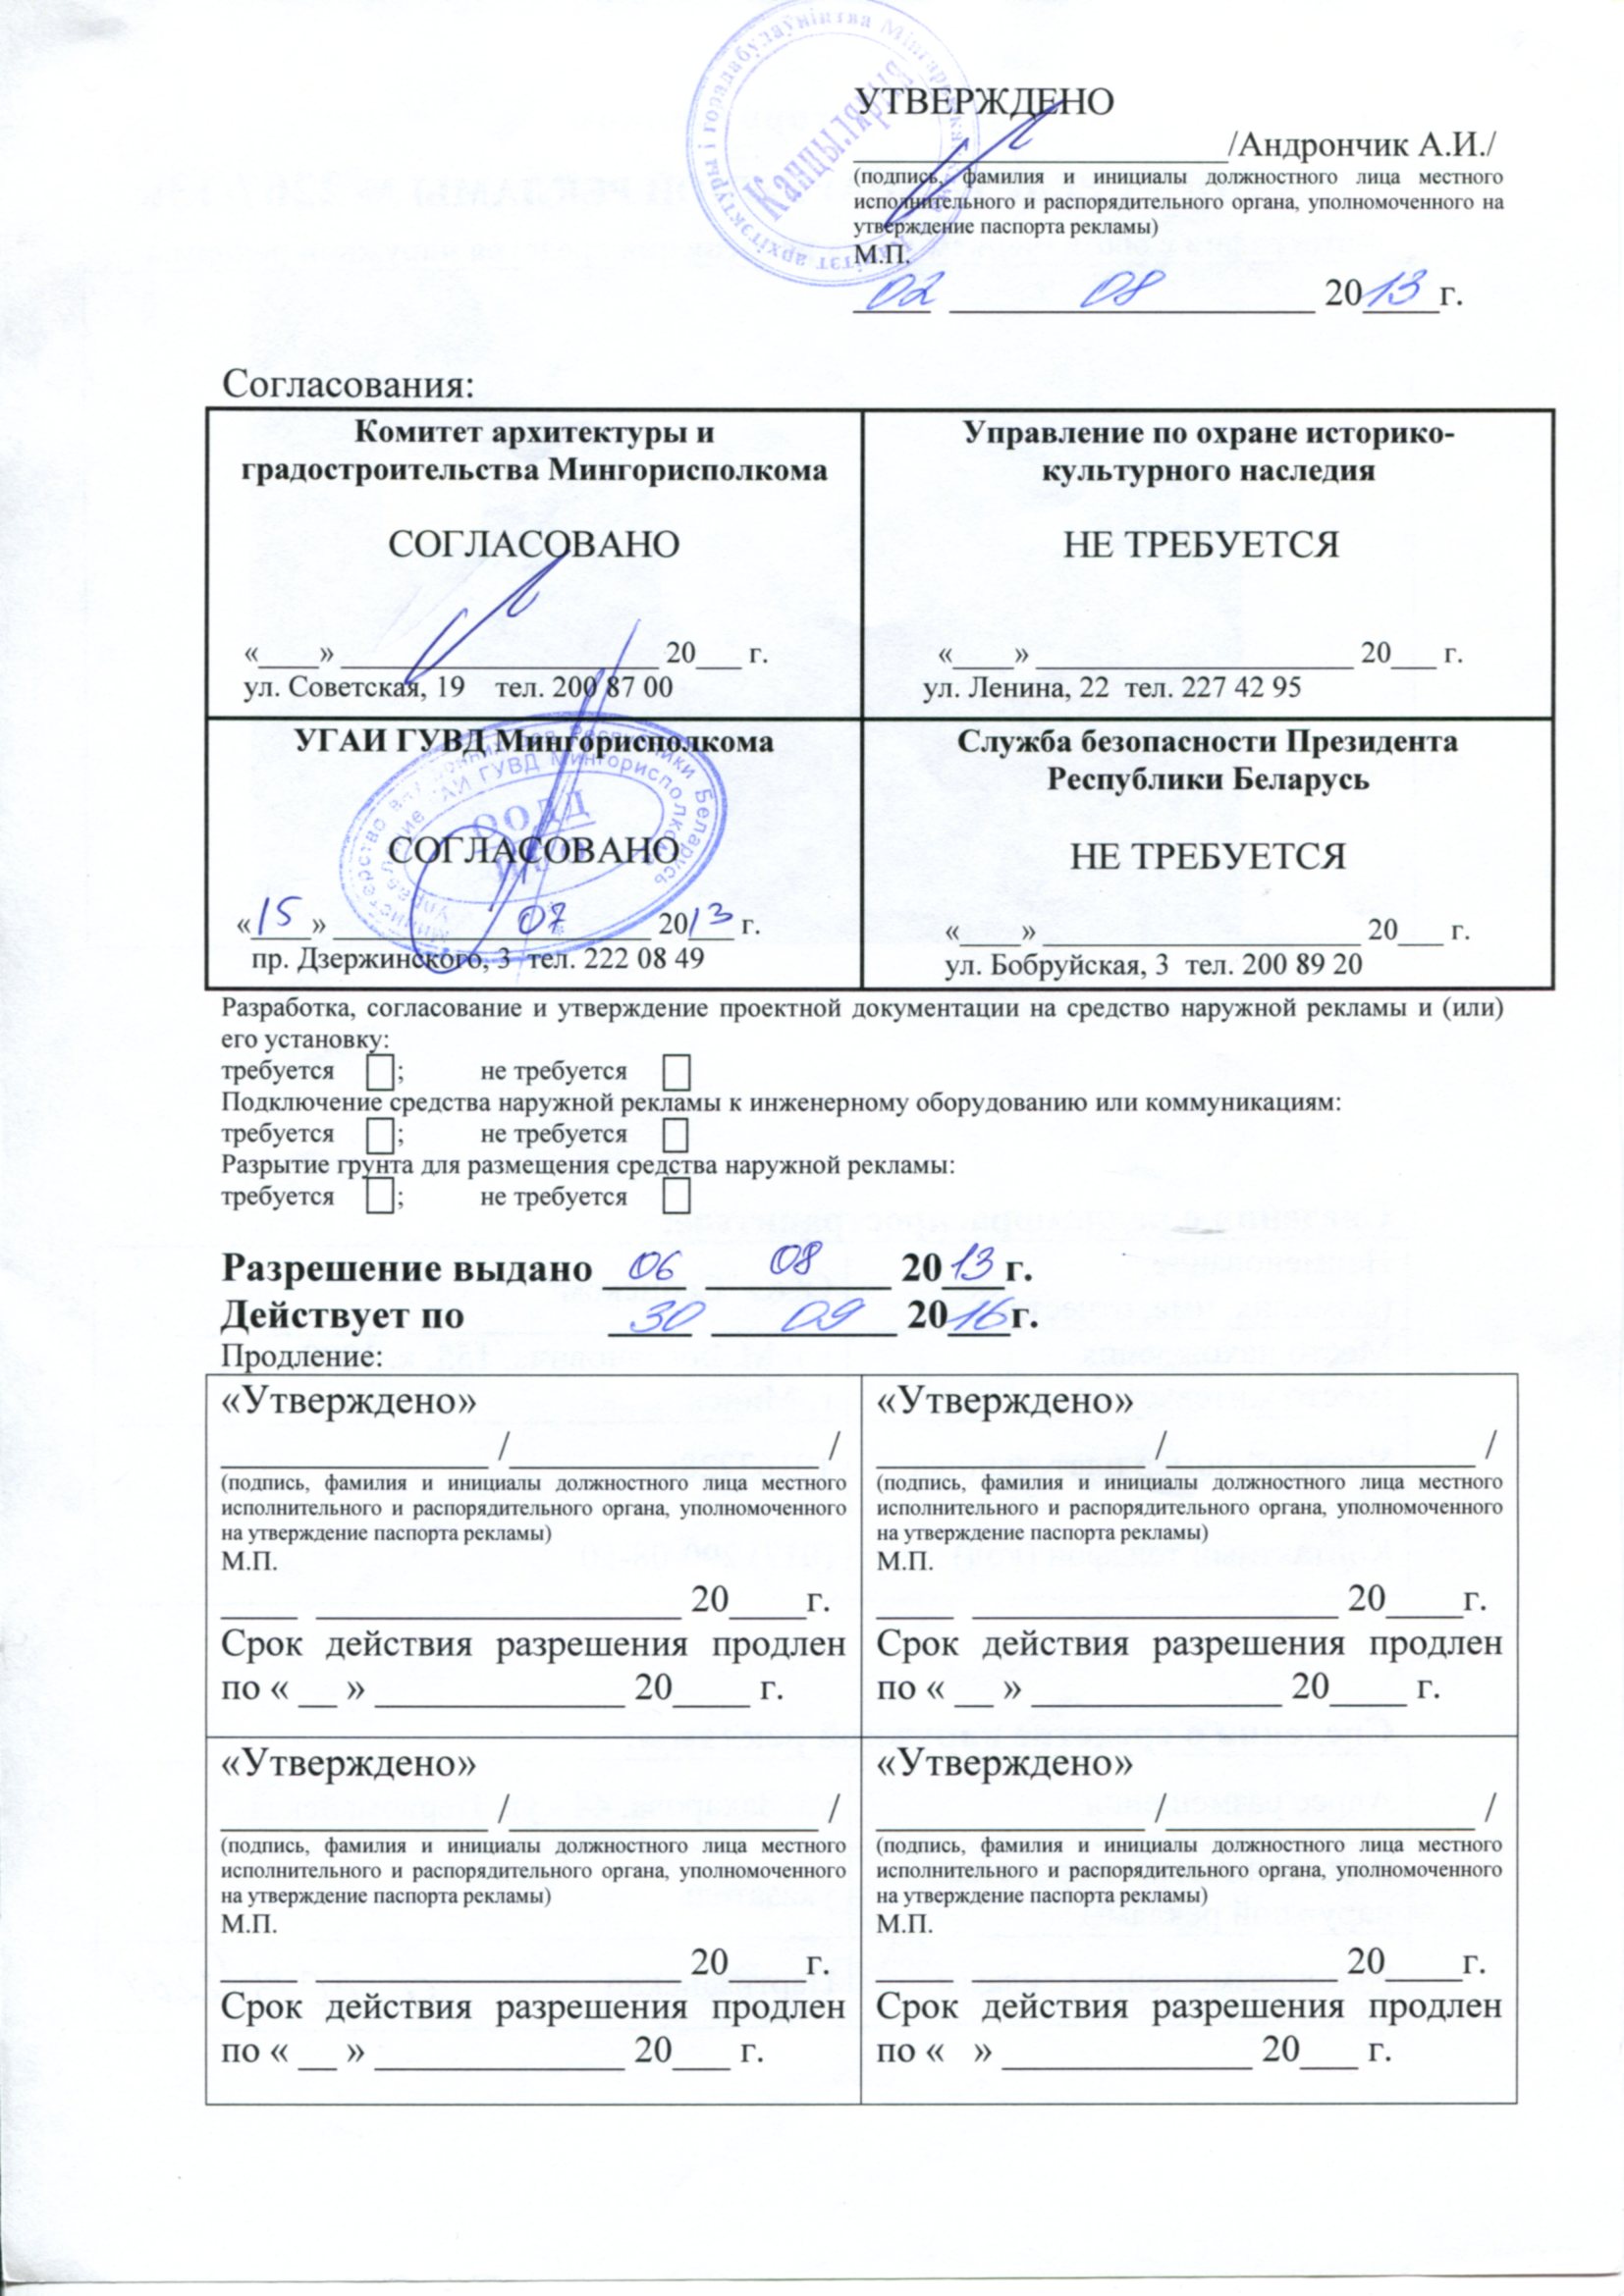 УТВЕРЖДЕНО
____________________/Андрончик А.И./
(подпись, фамилия и инициалы должностного лица местного
исполнительного и распорядительного органа, уполномоченного на
утверждение паспорта рекламы)
М.П.
02 08 2013 г.
Канцылярыя
Согласования:
Комитет архитектуры и
градостроительства Мингорисполкома
СОГЛАСОВАНО
«____» ____________________ 20___ г.
ул. Советская, 19 тел. 200 87 00
Управление по охране историко-
культурного наследия
НЕ ТРЕБУЕТСЯ
«____» ____________________ 20___ г.
ул. Ленина, 22 тел. 227 42 95
УГАИ ГУВД Мингорисполкома
ООДД
СОГЛАСОВАНО
«15» 07 2013 г.
пр. Дзержинского, 3 тел. 222 08 49
Служба безопасности Президента
Республики Беларусь
НЕ ТРЕБУЕТСЯ
«____» ____________________ 20___ г.
ул. Бобруйская, 3 тел. 200 89 20
Разработка, согласование и утверждение проектной документации на средство наружной рекламы и (или)
его установку:
требуется ; не требуется
Подключение средства наружной рекламы к инженерному оборудованию или коммуникациям:
требуется ; не требуется
Разрытие грунта для размещения средства наружной рекламы:
требуется ; не требуется
Разрешение выдано 06 08 2013г.
Действует по 30 09 2016г.
Продление:
«Утверждено»
______________ /________________ /
(подпись, фамилия и инициалы должностного лица местного
исполнительного и распорядительного органа, уполномоченного
на утверждение паспорта рекламы)
М.П.
____ ___________________ 20____г.
Срок действия разрешения продлен
по « __ » _____________ 20____ г.
«Утверждено»
______________ /________________ /
(подпись, фамилия и инициалы должностного лица местного
исполнительного и распорядительного органа, уполномоченного
на утверждение паспорта рекламы)
М.П.
____ ___________________ 20____г.
Срок действия разрешения продлен
по « __ » _____________ 20____ г.
«Утверждено»
______________ /________________ /
(подпись, фамилия и инициалы должностного лица местного
исполнительного и распорядительного органа, уполномоченного
на утверждение паспорта рекламы)
М.П.
____ ___________________ 20____г.
Срок действия разрешения продлен
по « __ » _____________ 20___ г.
«Утверждено»
______________ /________________ /
(подпись, фамилия и инициалы должностного лица местного
исполнительного и распорядительного органа, уполномоченного
на утверждение паспорта рекламы)
М.П.
____ ___________________ 20____г.
Срок действия разрешения продлен
по « » _____________ 20___ г.